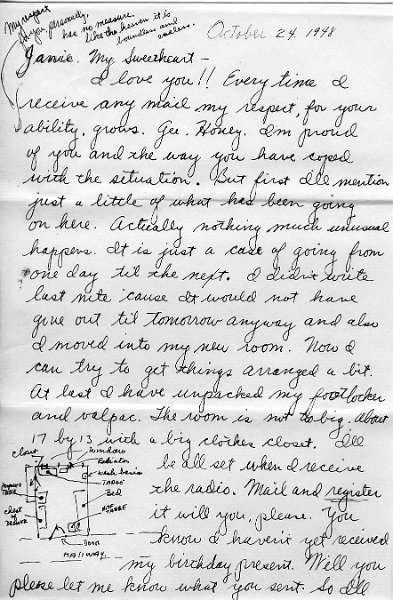 My respect
for you personally
has no measure.
like the heaven it is
boundless and
endless.
October 24, 1948
Jamie. My Sweetheart -
I love you!! Every time I
receive any mail my respect, for your
ability, grows. Gee. Honey. I'm proud
of you and the way you have coped
with the situation. But first I'll mention
just a little of what has been going
on here. Actually nothing much unusual
happens. It is just a case of going from
one day til the next. I didn't write
last nite 'cause it would not have
gone out til tomorrow anyway and also
I moved into my new room. Now I
can try to get things arranged a bit.
At last I have unpacked my footlocker
and valpac. The room is not to big, about
17 by 13 with a big clothes closet. I'll
be all set when I receive
the radio. Mail and register
it will you, please. You
know I haven't yet received
my birthday present. Will you
please let me know what you sent. So I'll
closet
windows
Radiator
wash basin
TABLE
Bed
chest of
DOOR
HALLWAY